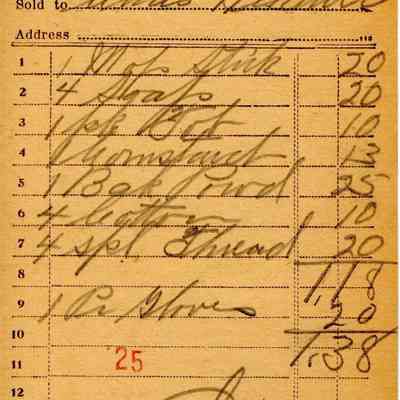 Sold to
Address
1 1 Mop Stick 20
2 4 Soaps 20
3 1 pk 10
4 1 Cornstarch 13
5 1 Bak Powd 25
6 4 10
7 4 spl. Thread 20
8 1,18
9 1 Pr Gloves 20
10 1.38
11 25
12